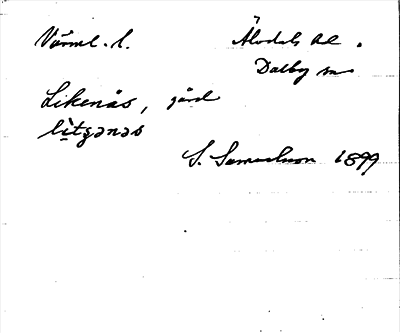 Värml. l. Älvdals hd.
Dalby sn
Likenäs, gård
lìtʂənəs
S. Samuelsson 1899